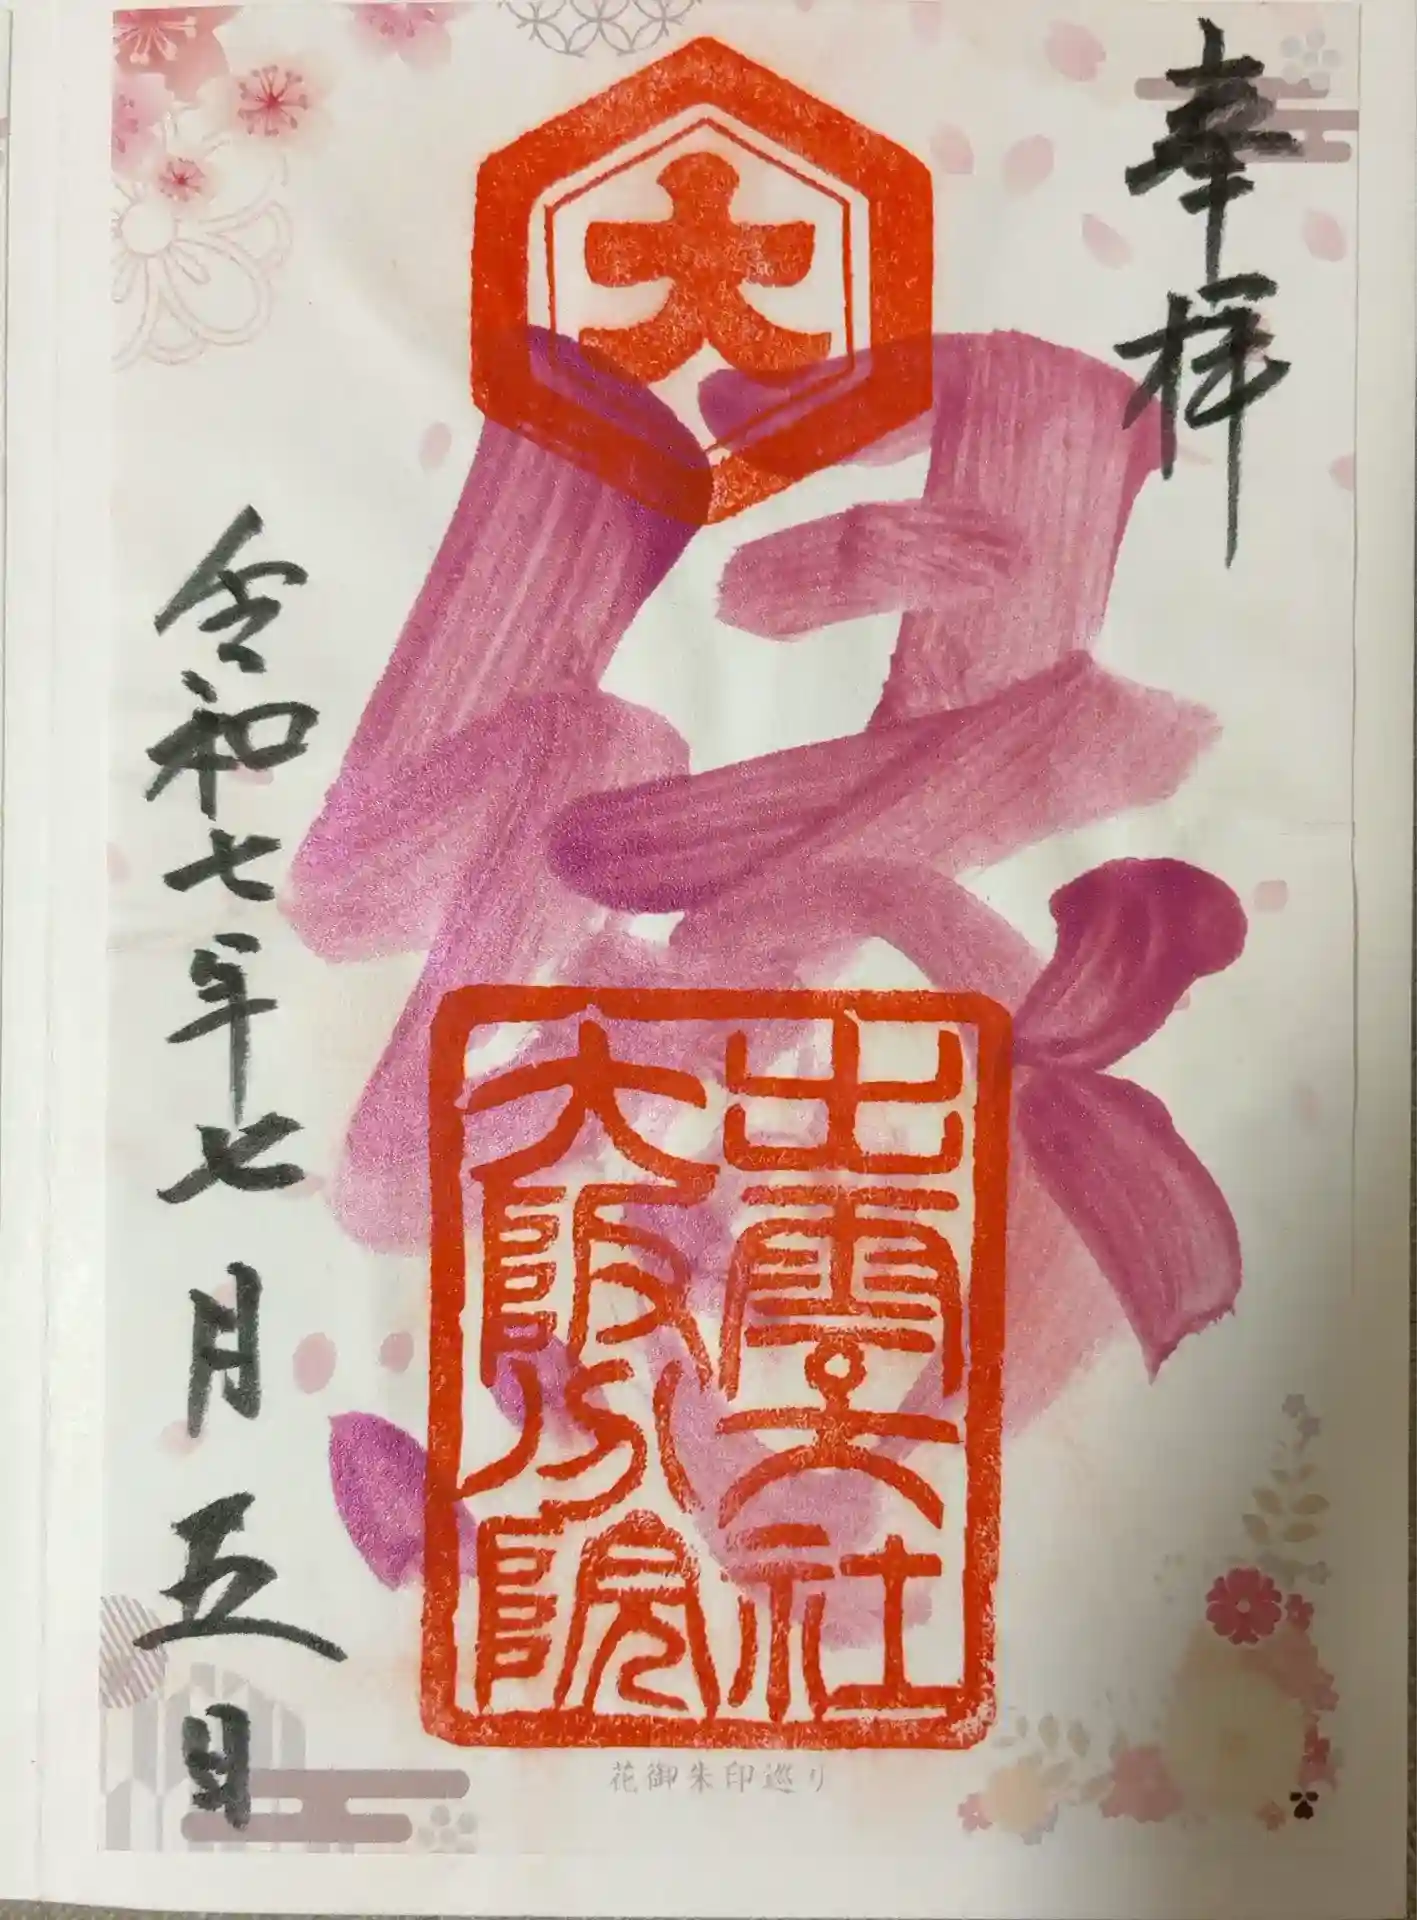 奉拝
大
縁
出雲大社
大阪分院
令和七年七月五日
花御朱印巡り